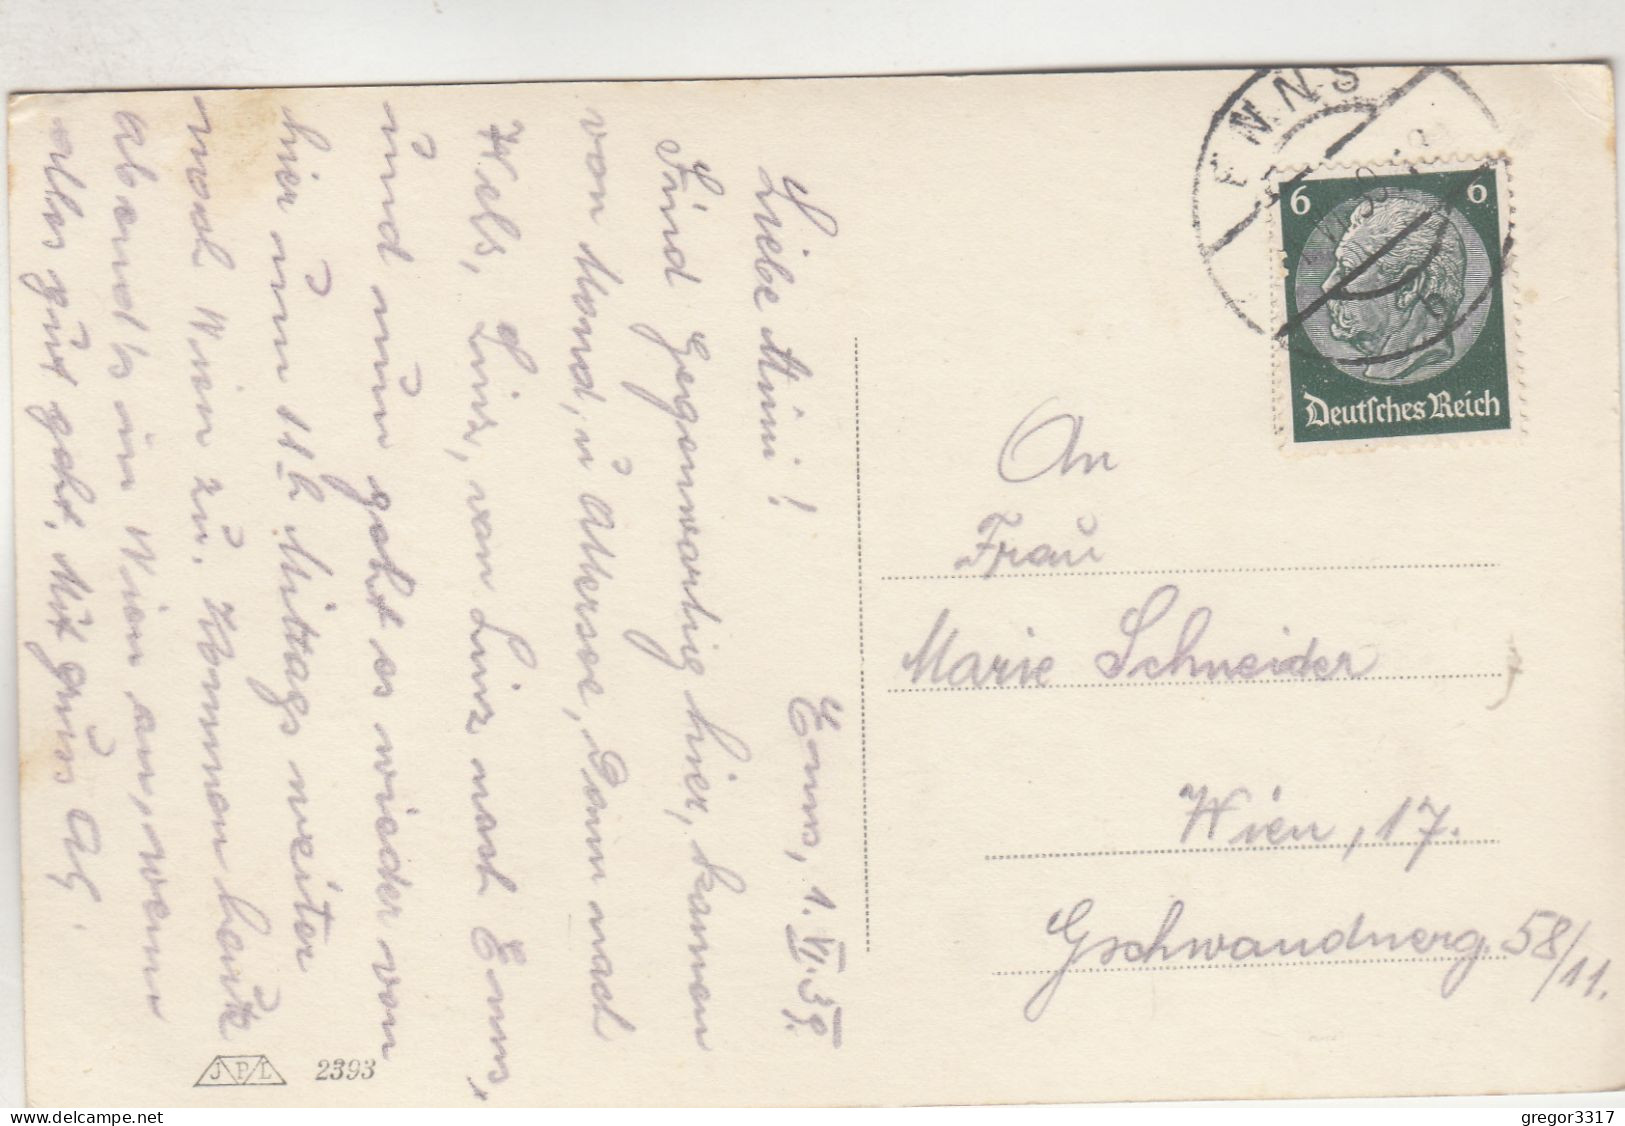 Enns, 1. VI. 39.
Liebe Mimi!
Sind Gegenwärtig hier, kamen
von Mond, u Attersee, dann nach
Wels, Linz, von Linz nach Enns,
und nun geht es wieder von
hier um 11h Mittags weiter
nach Wien zu. Kommen heute
abends in Wien an, wenn
alles gut geht. Mit grüss
ENNS
6 6
Deutsches Reich
An
Frau
Marie Schneider
Wien, 17.
Gschwandnerg. 58/11.
JPL 2393
delcampe.net
gregor3317